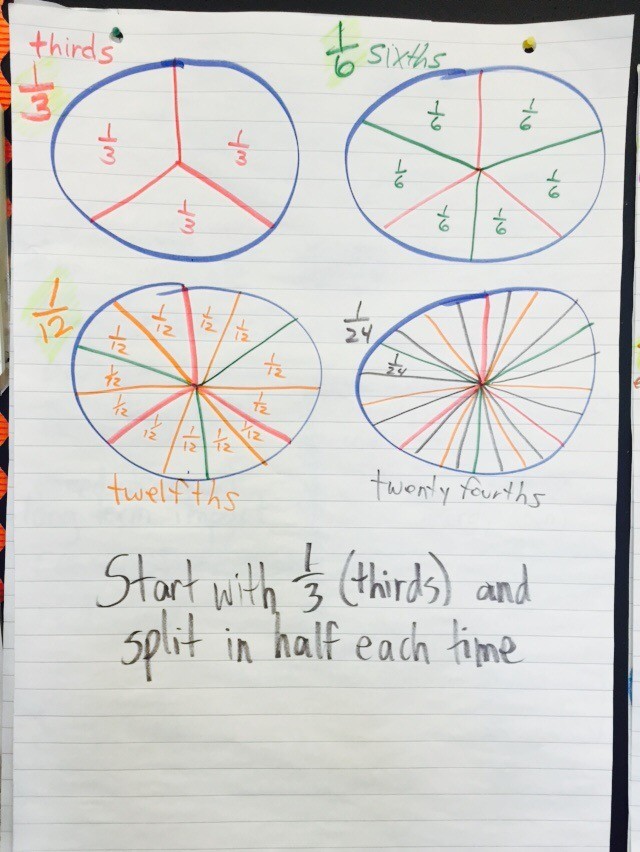 thirds
1/3
1/6 sixths
1/3 1/3
1/3
1/6 1/6
1/6 1/6
1/6 1/6
1/12
1/12 1/12 1/12 1/12
1/12 1/12
1/12 1/12
1/12 1/12 1/12 1/12
twelfths
1/24
1/24
twenty fourths
Start with 1/3 (thirds) and
split in half each time